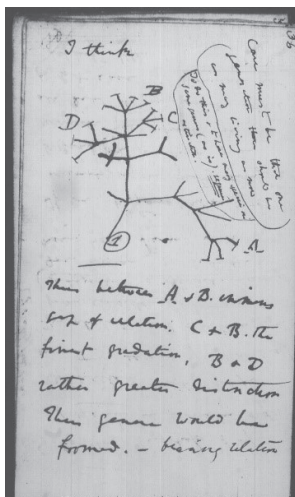 36
I think
Case must be that one
generation then should be
as many living as now
To do this & to have many species in
same genus (as is) requires
extinction.
B
D
C
1
A
Thus between A & B. immens
gap of relation. C & B. the
finest gradation, B & D
rather greater distinction
Thus genera would be
formed. – bearing relation